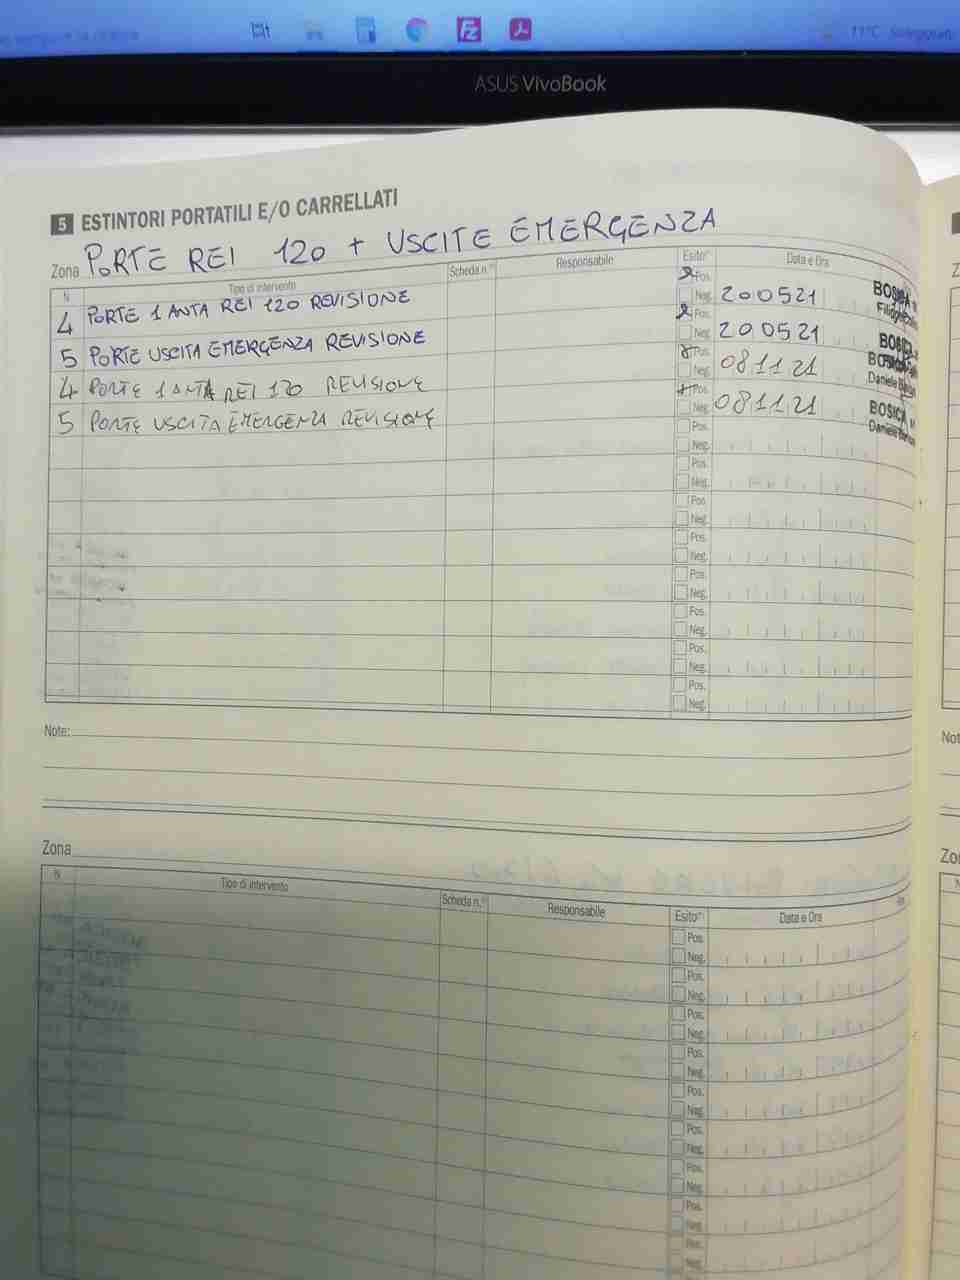 11°C Soleggiato
ASUS VivoBook
5 ESTINTORI PORTATILI E/O CARRELLATI
Zona PORTE REI 120 + USCITE EMERGENZA
N Tipo di intervento Scheda n. Responsabile Esito Data e Ora
4 PORTE 1 ANTA REI 120 REVISIONE Pos. Neg. 200521 BOSICA
5 PORTE USCITA EMERGENZA REVISIONE Pos. Neg. 200521 BOSICA
4 PORTE 1 ANTA REI 120 REVISIONE Pos. Neg. 081121 Daniele
5 PORTE USCITA EMERGENZA REVISIONE Pos. Neg. 081121 BOSICA Daniele
Pos.
Neg.
Pos.
Neg.
Pos.
Neg.
Pos.
Neg.
Pos.
Neg.
Pos.
Neg.
Pos.
Neg.
Pos.
Neg.
Note:
Zona
N Tipo di intervento Scheda n. Responsabile Esito Data e Ora
Pos.
Neg.
Pos.
Neg.
Pos.
Neg.
Pos.
Neg.
Pos.
Neg.
Pos.
Neg.
Pos.
Neg.
Pos.
Neg.
Pos.
Neg.